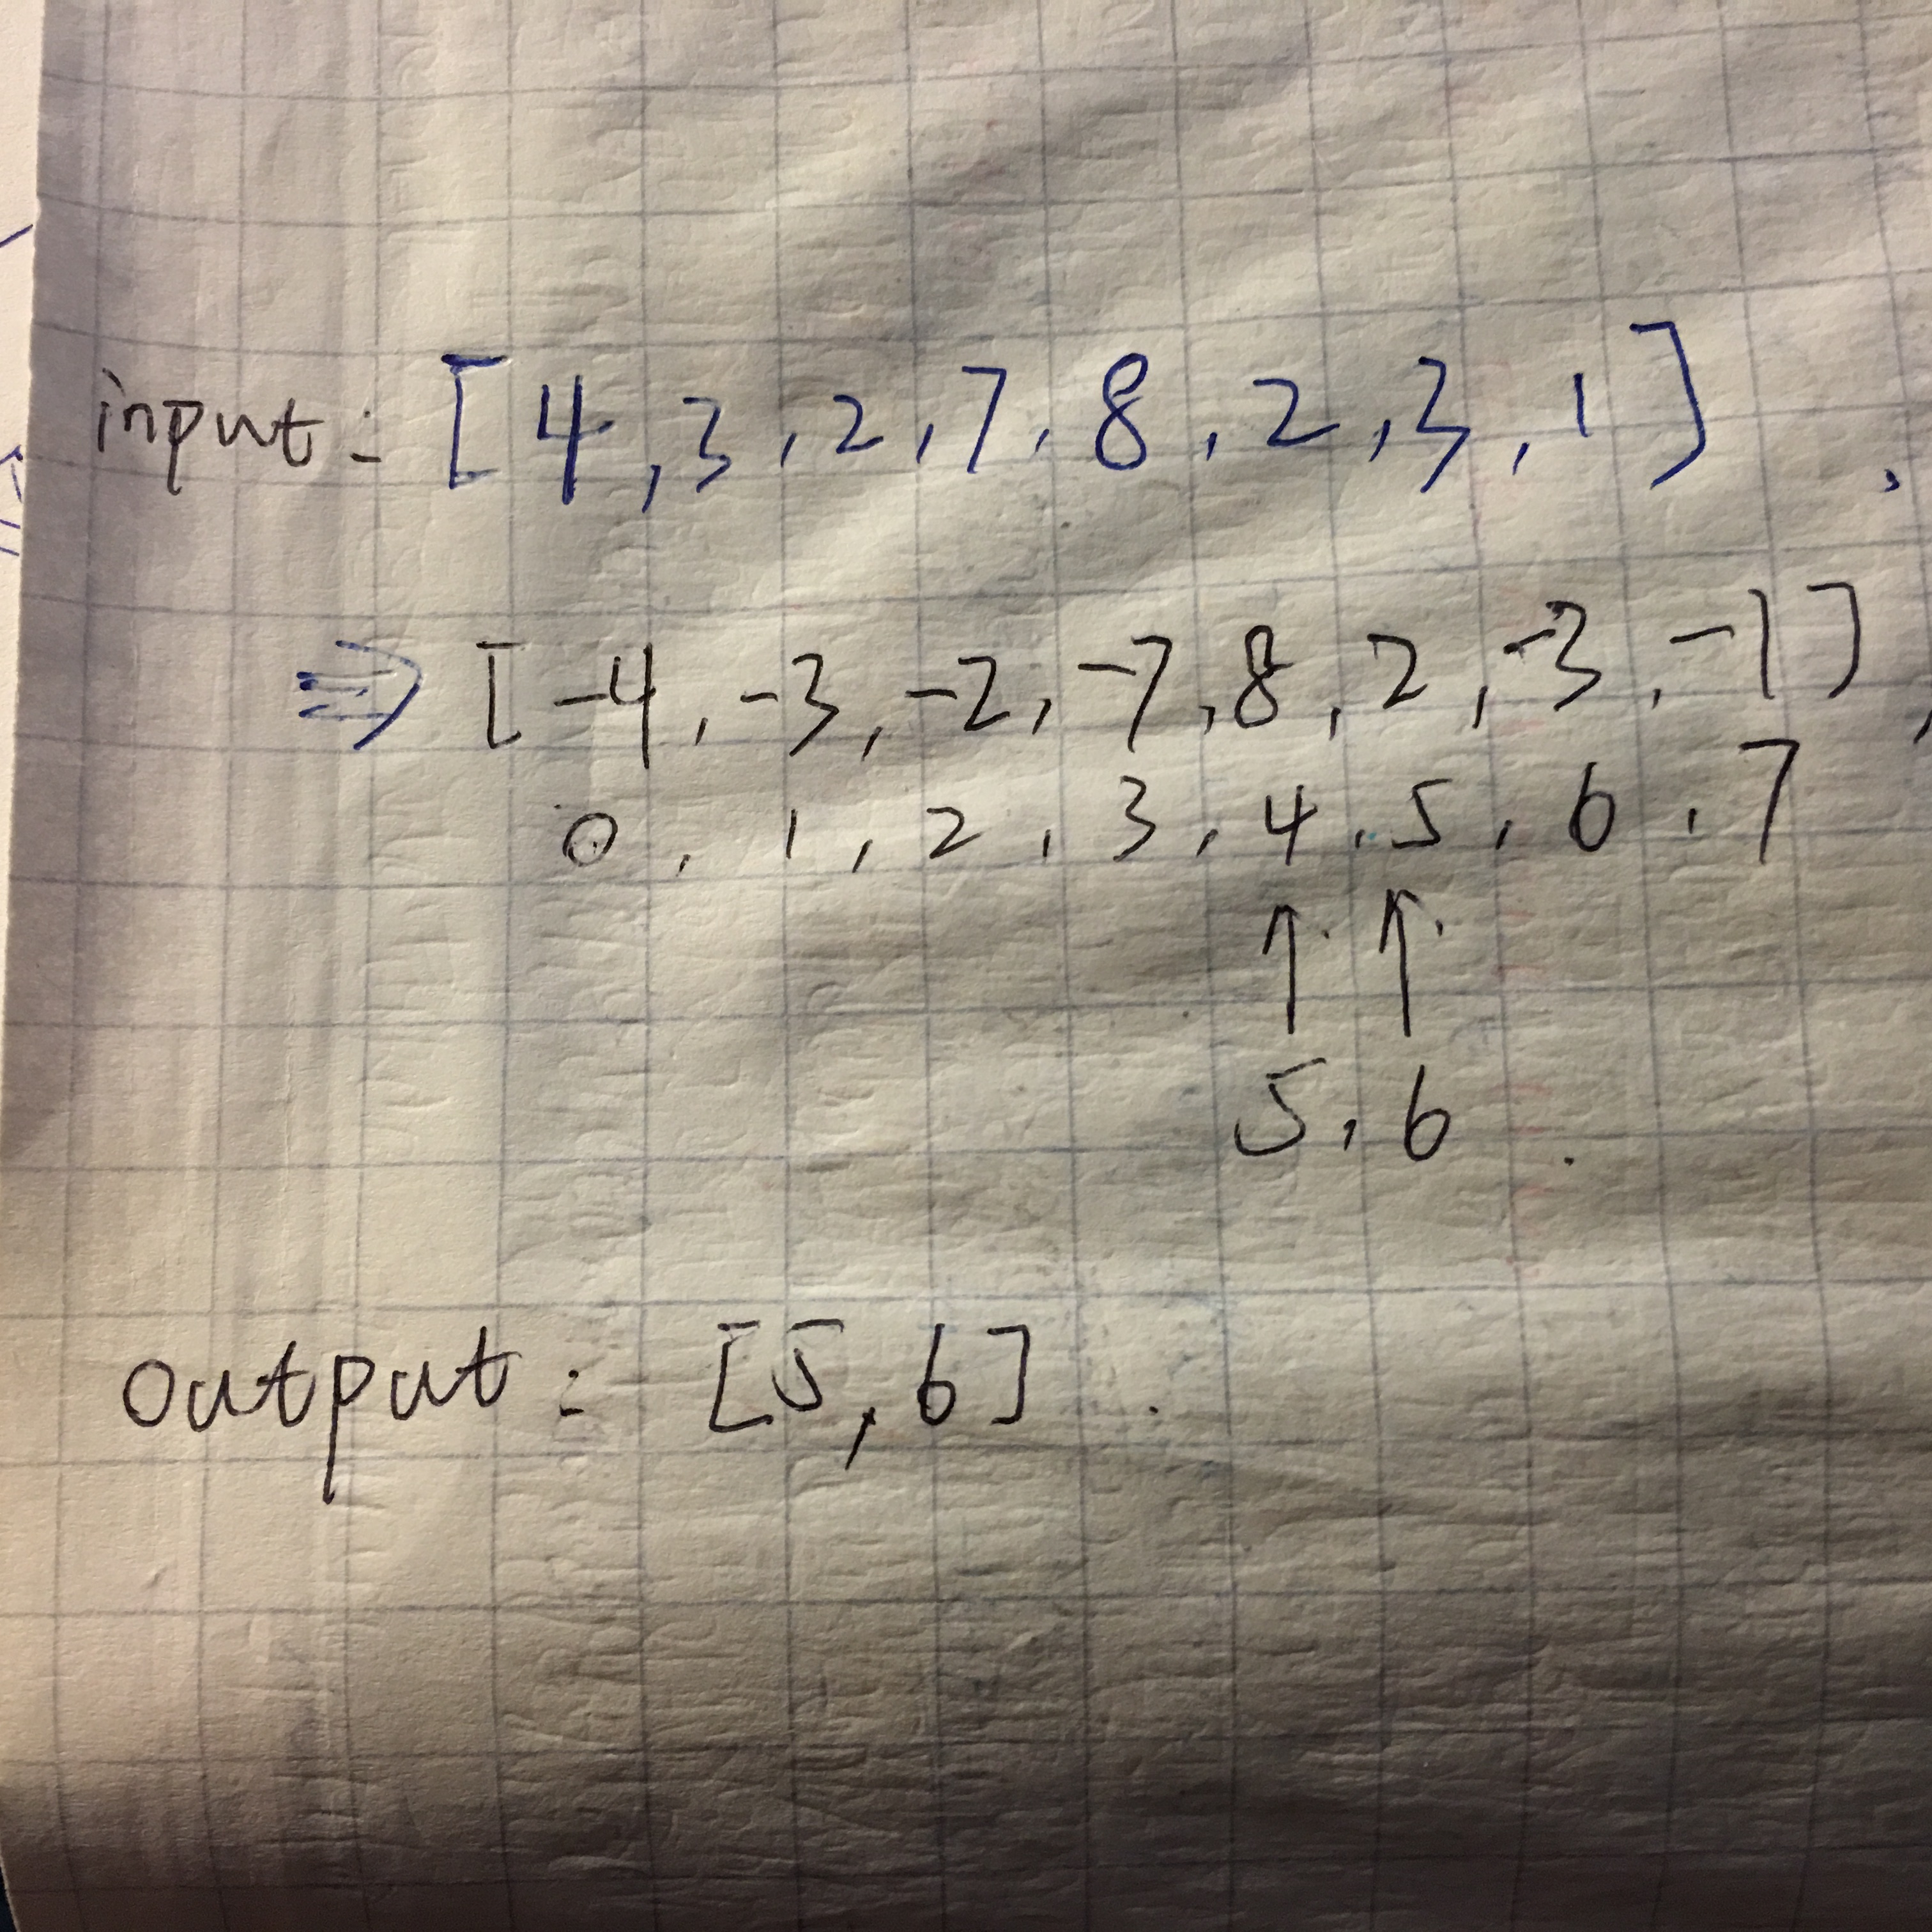 input : [4, 3, 2, 7, 8, 2, 3, 1]
⇒ [-4, -3, -2, -7, 8, 2, -3, -1]
0, 1, 2, 3, 4, 5, 6, 7
↑ ↑
5, 6
output : [5, 6]